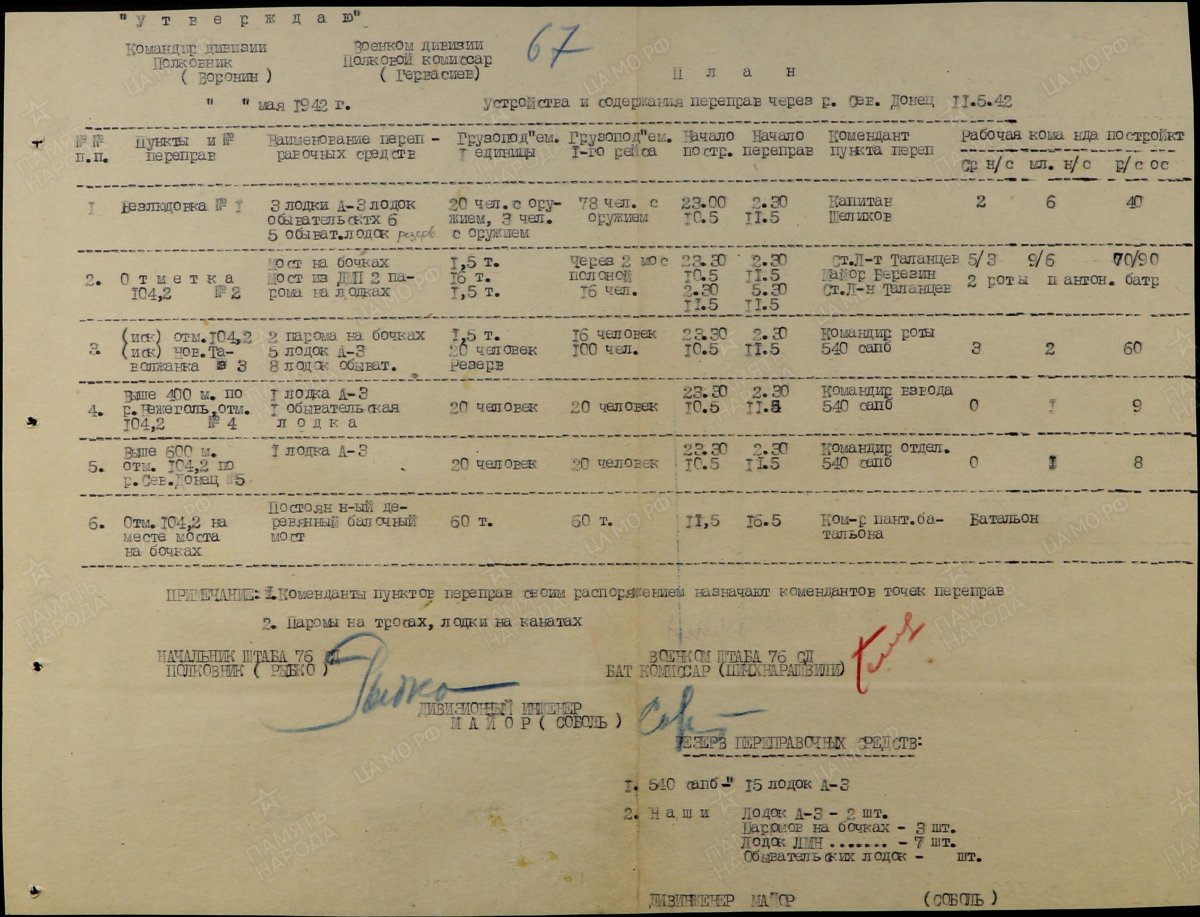 "У т в е р ж д а ю"
Командир дивизии Военком дивизии 67
Полковник Полковой комиссар
( Воронин ) ( Гервасиев) П л а н
" " мая 1942 г. Устройства и содержания переправ через р. Сев. Донец 11.5.42
№ № Пункты и № Наименование переп - Грузопод"ем. Грузопод"ем. Начало Начало Комендант Рабочая кома нда по стройкт
п.п. переправ равочных средств 1 единицы 1-го рейса постр. переправ пункта переп
Ср н/с мл. н/с р/с ос
1 Безлюдовка № 1 3 лодки А-3 лодок 20 чел. с ору- 78 чел. с 23.00 2.30 Капитан 2 6 40
обывательсктх 6 жием, 3 чел. оружием 10.5 11.5 Шеликов
5 обыват.лодок резерв. с оружием
Мост на бочках 1,5 т. Через 2 мос 23.30 2.30 Ст.Л-т Таланцев 5/3 9/6 70/90
2. О т м е т к а Мост из ДМП 2 па- 16 т. полоной 10.5 11.5 Майор Березин 2 роты п антон. батр
104,2 № 2 рома на лодках 1,5 т. 16 чел. 2.30 5.30 Ст.Л-н Таланцев
11.5 11.5
(иск) отм.104,2 2 парома на бочках 1,5 т. 16 человек 23.30 2.30 Командир роты
3. (иск) Нов.Та- 5 лодок А-3 20 человек 100 чел. 10.5 11.5 540 сапб 3 2 60
волжанка № 3 8 лодок обыват. Резерв
Выше 400 м. по 1 лодка А-3 23.30 2.30 Командир взвода
4. р.Нежеголь,отм. 1 обывательская 20 человек 20 человек 10.5 11.5 540 сапб 0 1 9
104,2 № 4 л о д к а
Выше 600 м. 1 лодка А-3 23.30 2.30 Командир отдел.
5. отм. 104,2 по 20 человек 20 человек 10.5 11.5 540 сапб 0 1 8
р.Сев.Донец №5
Постоян н-ый де-
6. Отм.104,2 на ревянный балочный 60 т. 60 т. 11,5 16.5 Ком-р пант.ба- Батальон
месте моста мост тальона
на бочках
ПРИМЕЧАНИЕ: 1.Коменданты пунктов переправ своим распоряжением назначают комендантов точек переправ
2. Паромы на тросах, лодки на канатах
НАЧАЛЬНИК ШТАБА 76 СД ВОЕНКОМ ШТАБА 76 СД
ПОЛКОВНИК ( РЫБКО ) БАТ КОМИССАР (ПИНХНАРАШВИЛИ)
Рыбко
ДИВИЗИОННЫЙ ИНЖЕНЕР
М А Й О Р ( СОБОЛЬ )
РЕЗЕРВ ПЕРЕПРАВОЧНЫХ СРЕДСТВ:
1. 540 сапб -" 15 лодок А-3
2. Н а ш и Лодок А-3 - 2 шт.
Паромов на бочках - 3 шт.
Лодок ЛМН ....... - 7 шт.
Обывательских лодок - шт.
ДИВИНЖЕНЕР МАЙОР (СОБОЛЬ )
ПАМЯТЬ НАРОДА
ЦА МО.РФ